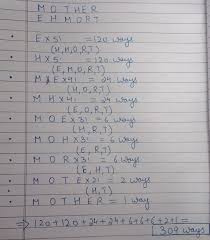 MOTHER
EHMORT
• E×5! =120 ways
(H,M,O,R,T)
• H×5! =120 ways
(E,M,O,R,T)
• ME×4! =24 ways
(H,O,R,T)
• MH×4! =24 ways
(E,O,R,T)
• MOE×3! =6 ways
(H,R,T)
• MOH×3! =6 ways
(E,R,T)
• MOR×3! =6 ways
(E,H,T)
• MOTE×2! =2 ways
(H,R)
• MOTHER = 1 way
⇒ 120+120+24+24+6+6+6+2+1=
309 ways